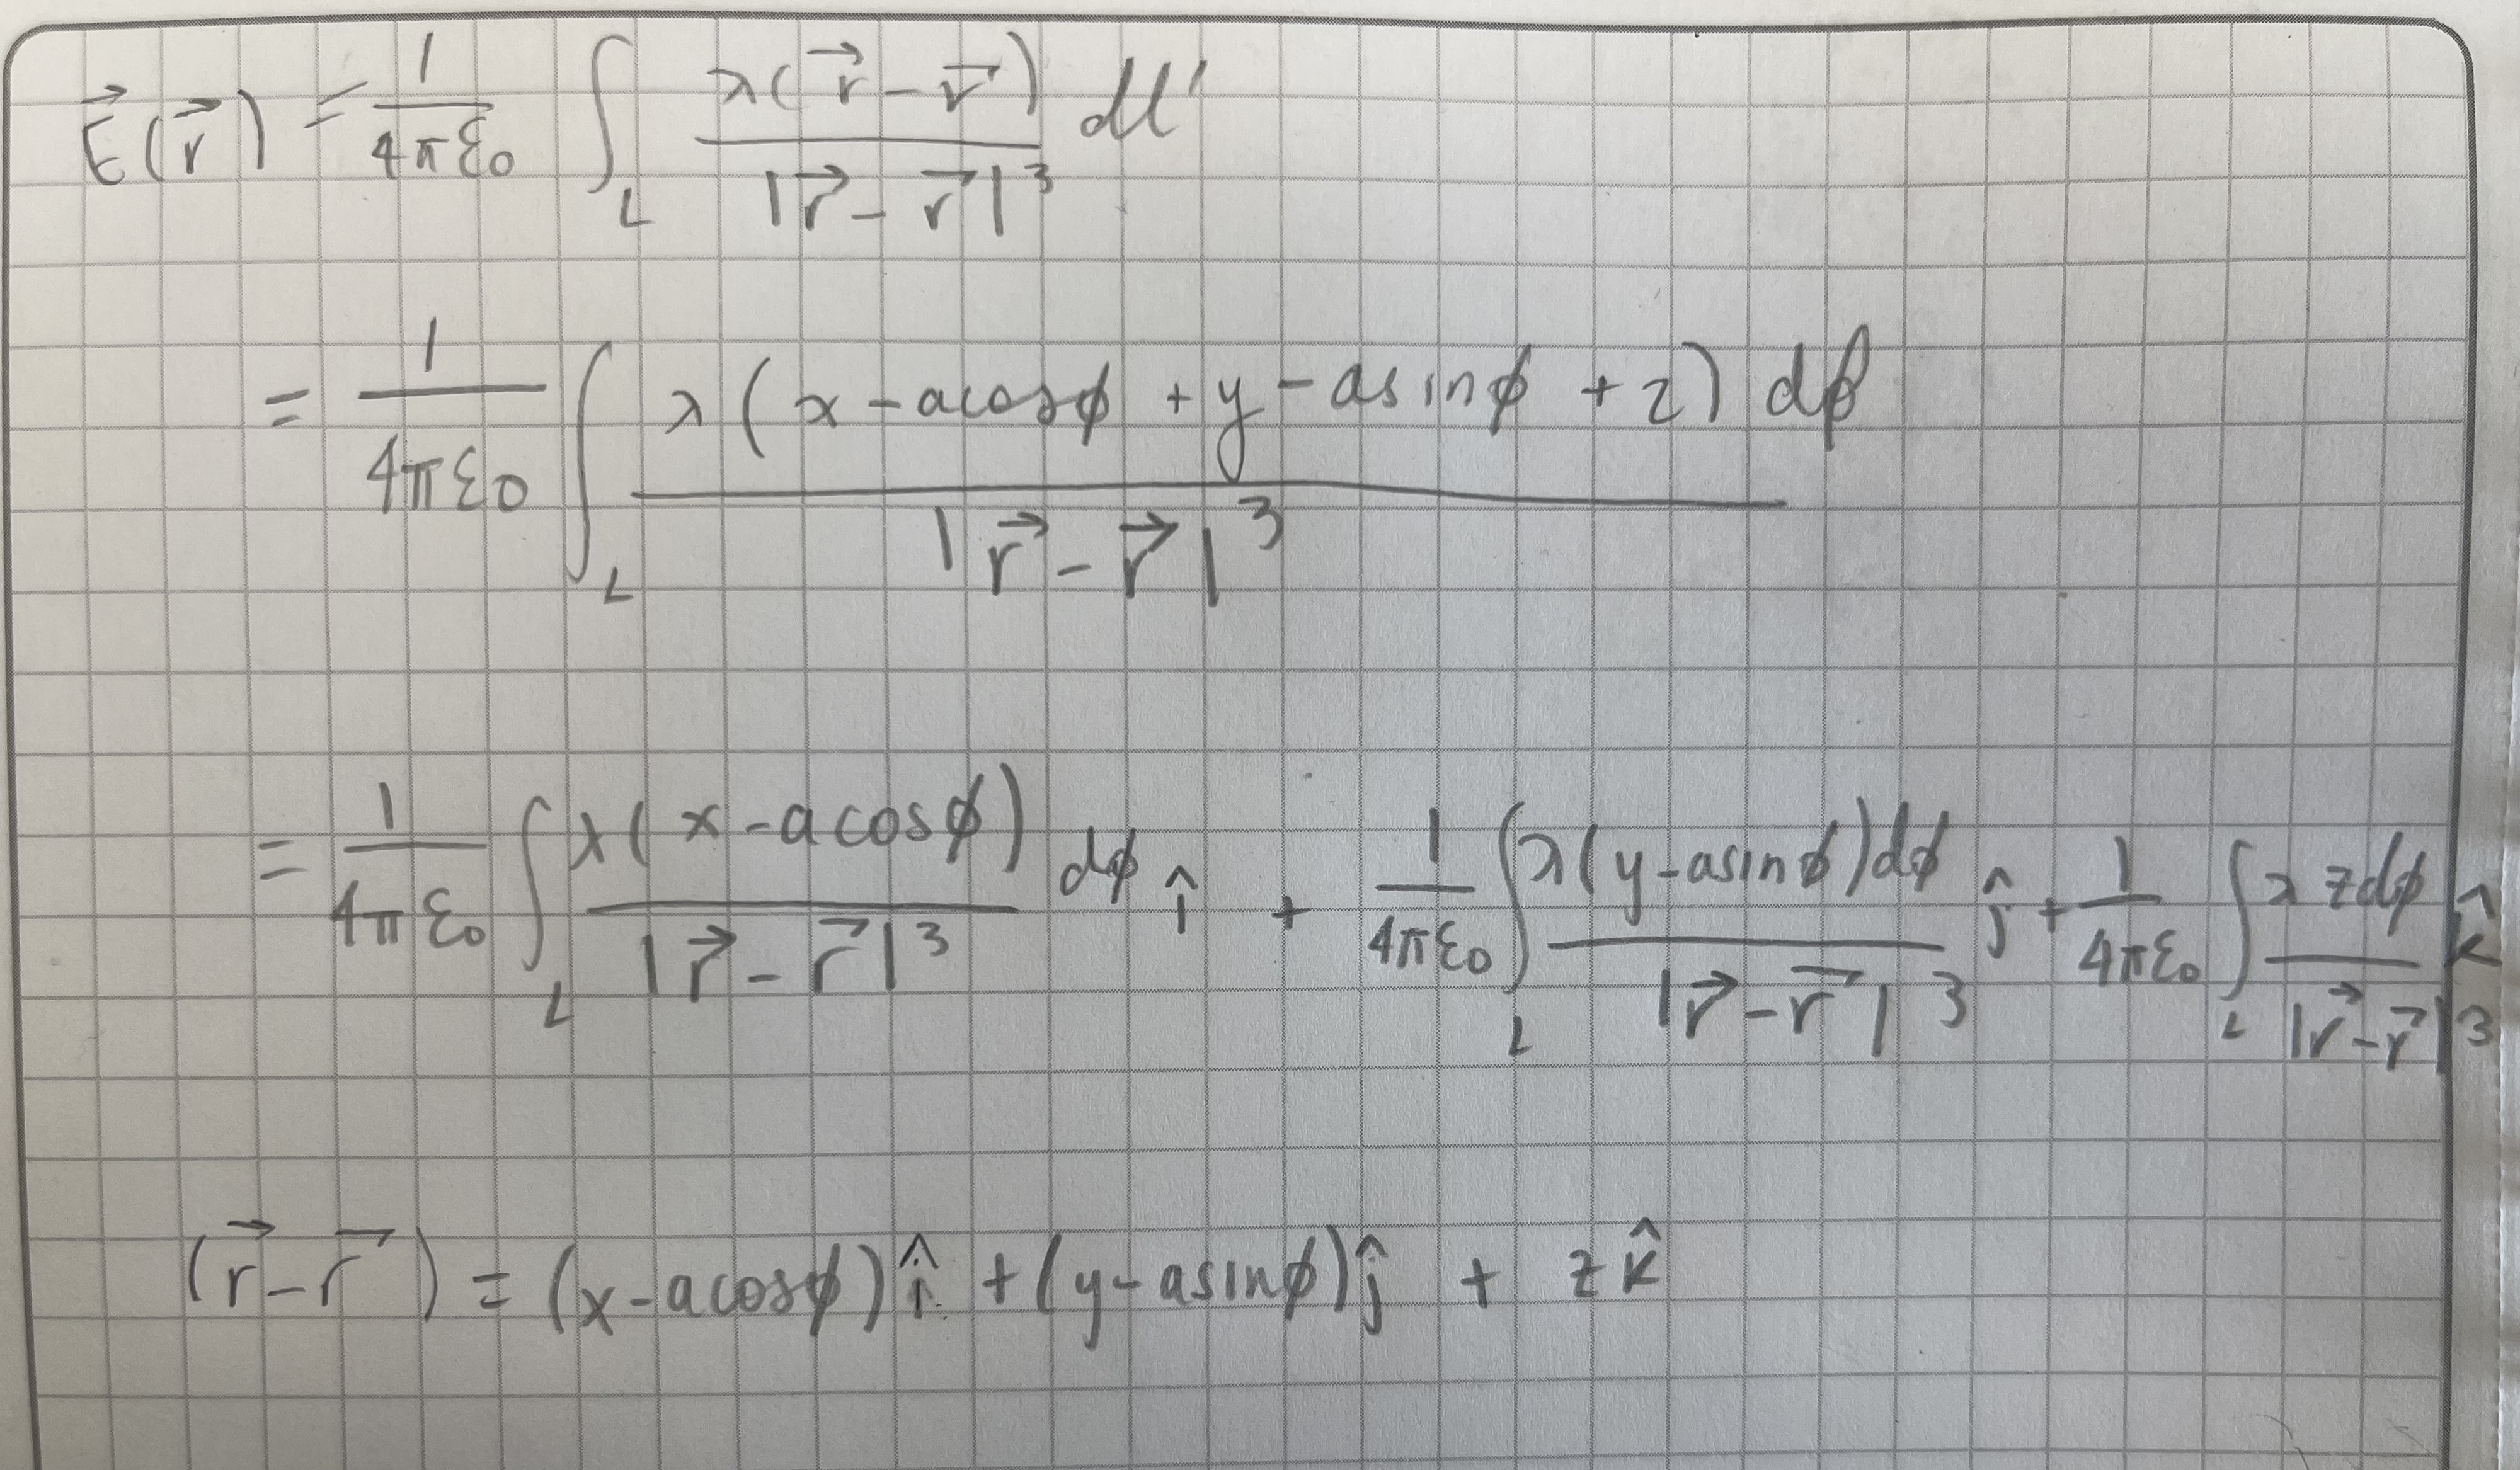 $\vec{E}(\vec{r}) = \frac{1}{4\pi\varepsilon_0} \int_L \frac{\lambda(\vec{r} - \vec{r})}{|\vec{r} - \vec{r}|^3} dl'$
$= \frac{1}{4\pi\varepsilon_0} \int_L \frac{\lambda(x - a\cos\phi + y - a\sin\phi + z) d\phi}{|\vec{r} - \vec{r}|^3}$
$= \frac{1}{4\pi\varepsilon_0} \int_L \frac{\lambda(x - a\cos\phi)}{|\vec{r} - \vec{r}|^3} d\phi \hat{i} + \frac{1}{4\pi\varepsilon_0} \int_L \frac{\lambda(y - a\sin\phi) d\phi}{|\vec{r} - \vec{r}|^3} \hat{j} + \frac{1}{4\pi\varepsilon_0} \int_L \frac{\lambda z d\phi}{|\vec{r} - \vec{r}|^3} \hat{k}$
$(\vec{r} - \vec{r}) = (x - a\cos\phi)\hat{i} + (y - a\sin\phi)\hat{j} + z\hat{k}$